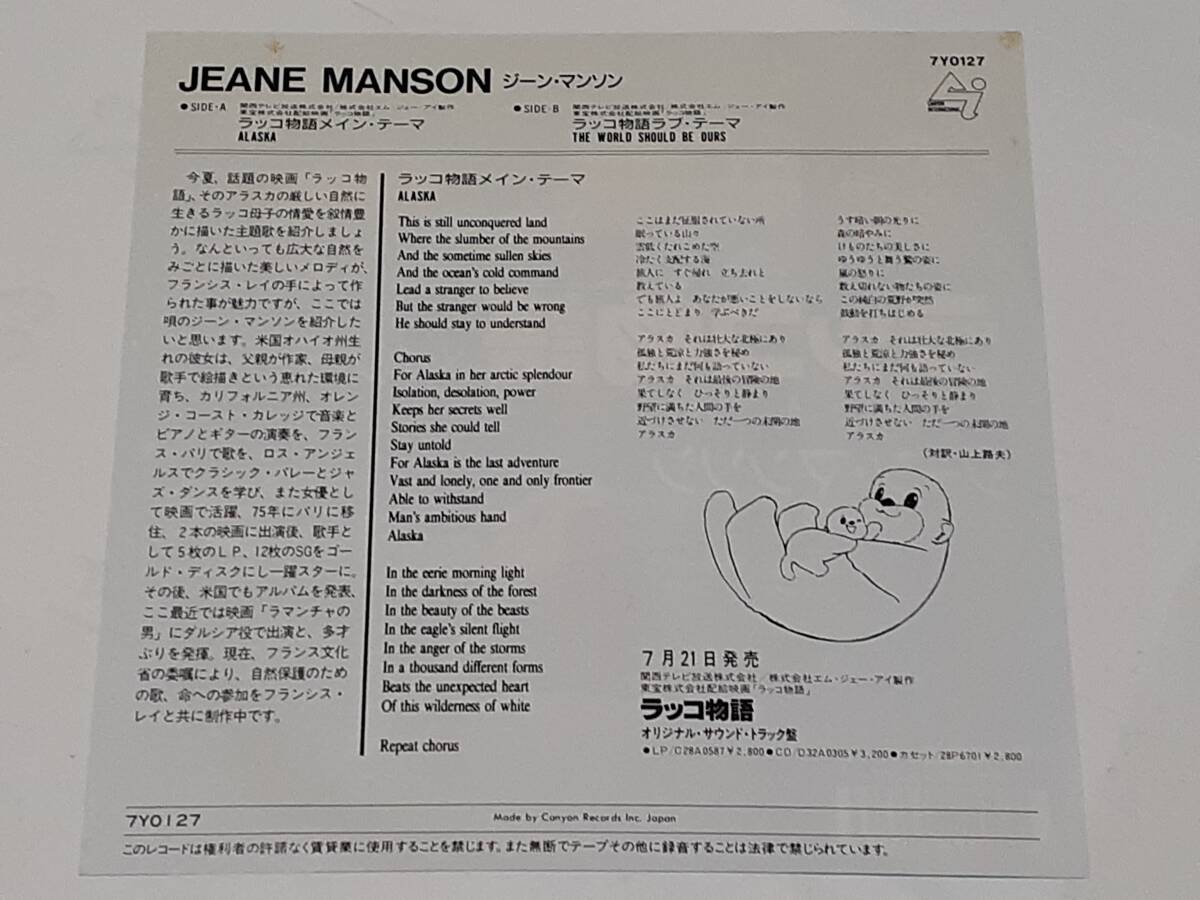 JEANE MANSON ジーン・マンソン
7Y0127
CANYON INTERNATIONAL
●SIDE-A 関西テレビ放送株式会社/株式会社エム・ジェー・アイ製作
東宝株式会社配給映画「ラッコ物語」
ラッコ物語メイン・テーマ
ALASKA
●SIDE-B 関西テレビ放送株式会社/株式会社エム・ジェー・アイ製作
東宝株式会社配給映画「ラッコ物語」
ラッコ物語ラブ・テーマ
THE WORLD SHOULD BE OURS
今夏、話題の映画「ラッコ物
語」、そのアラスカの厳しい自然に
生きるラッコ母子の情愛を叙情豊
かに描いた主題歌を紹介しましょ
う。なんといっても広大な自然を
みごとに描いた美しいメロディが、
フランシス・レイの手によって作
られた事が魅力ですが、ここでは
唄のジーン・マンソンを紹介した
いと思います。米国オハイオ州生
れの彼女は、父親が作家、母親が
歌手で絵描きという恵れた環境に
育ち、カリフォルニア州、オレン
ジ・コースト・カレッジで音楽と
ピアノとギターの演奏を、フラン
ス・パリで歌を、ロス・アンジェ
ルスでクラシック・バレーとジャ
ズ・ダンスを学び、また女優とし
て映画で活躍、75年にパリに移
住、2本の映画に出演後、歌手と
して5枚のLP、12枚のSGをゴー
ルド・ディスクにし一躍スターに。
その後、米国でもアルバムを発表、
ここ最近では映画「ラマンチャの
男」にダルシア役で出演と、多才
ぶりを発揮。現在、フランス文化
省の委嘱により、自然保護のため
の歌、命への参加をフランシス・
レイと共に制作中です。
ラッコ物語メイン・テーマ
ALASKA
This is still unconquered land
Where the slumber of the mountains
And the sometime sullen skies
And the ocean's cold command
Lead a stranger to believe
But the stranger would be wrong
He should stay to understand
Chorus
For Alaska in her arctic splendour
Isolation, desolation, power
Keeps her secrets well
Stories she could tell
Stay untold
For Alaska is the last adventure
Vast and lonely, one and only frontier
Able to withstand
Man's ambitious hand
Alaska
In the eerie morning light
In the darkness of the forest
In the beauty of the beasts
In the eagle's silent flight
In the anger of the storms
In a thousand different forms
Beats the unexpected heart
Of this wilderness of white
Repeat chorus
ここはまだ征服されていない所
眠っている山々
雲低くたれこめた空
冷たく支配する海
旅人に すぐ帰れ 立ち去れと
教えている
でも旅人よ あなたが悪いことをしないなら
ここにとどまり 学ぶべきだ
アラスカ それは壮大な北極にあり
孤独と荒涼と力強さを秘め
私たちにまだ何も語っていない
アラスカ それは最後の冒険の地
果てしなく ひっそりと静まり
野望に満ちた人間の手を
近づけさせない ただ一つの未開の地
アラスカ
うす暗い朝の光りに
森の暗やみに
けものたちの美しさに
ゆうゆうと舞う鷲の姿に
嵐の怒りに
数え切れない物たちの姿に
この純白の荒野が突然
鼓動を打ちはじめる
アラスカ それは壮大な北極にあり
孤独と荒涼と力強さを秘め
私たちにまだ何も語っていない
アラスカ それは最後の冒険の地
果てしなく ひっそりと静まり
野望に満ちた人間の手を
近づけさせない ただ一つの未開の地
アラスカ
(対訳・山上路夫)
7月21日発売
関西テレビ放送株式会社/株式会社エム・ジェー・アイ製作
東宝株式会社配給映画「ラッコ物語」
ラッコ物語
オリジナル・サウンド・トラック盤
●LP/C28A0587¥2,800●CD/D32A0305¥3,200●カセット/28P6701¥2,800
7Y0127
Made by Canyon Records Inc. Japan
このレコードは権利者の許諾なく賃貸業に使用することを禁じます。また無断でテープその他に録音することは法律で禁じられています。